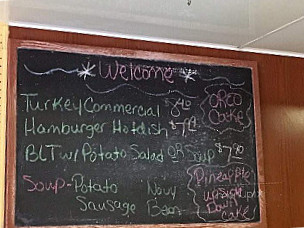 Welcome
Turkey Commercial $7.90
OREO
Cake
Hamburger Hotdish $7.90
BLT w/ Potato Salad OR Soup $7.90
Soup - Potato Navy
Sausage Bean
Pineapple
upside
Down
cake